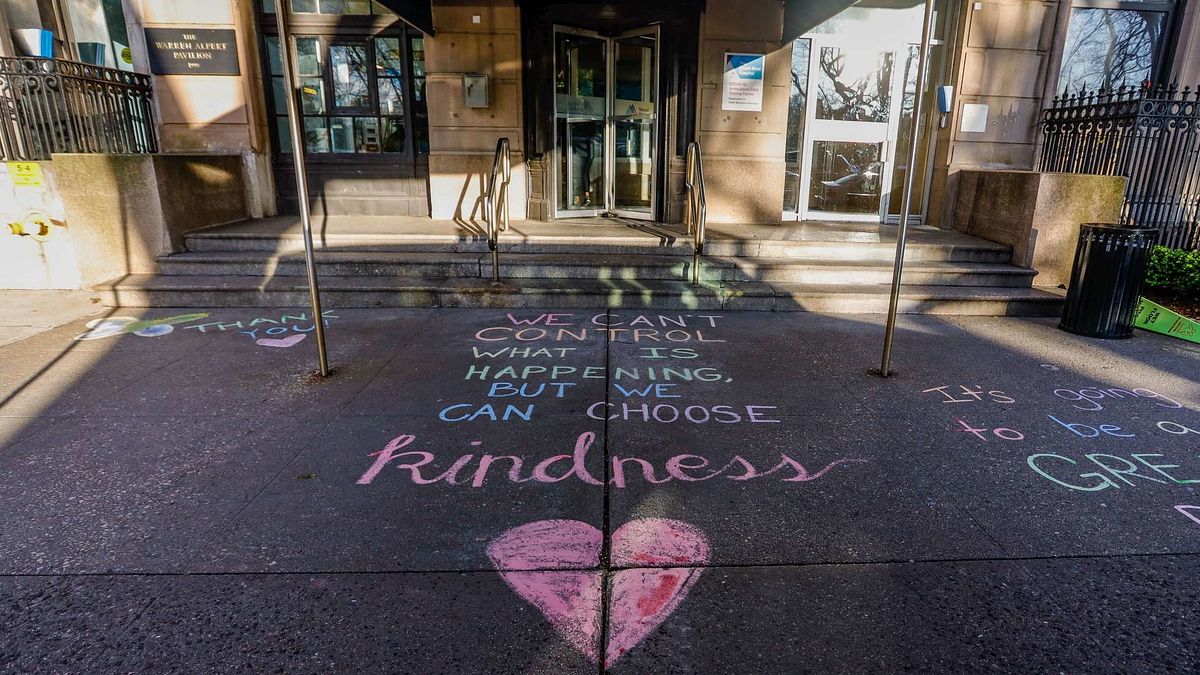 THE
WARREN ALPERT
PAVILION
S-4
COVID-19
THANK
YOU!
WE CAN'T
CONTROL
WHAT IS
HAPPENING,
BUT WE
CAN CHOOSE
kindness
It's going
to be a
GRE